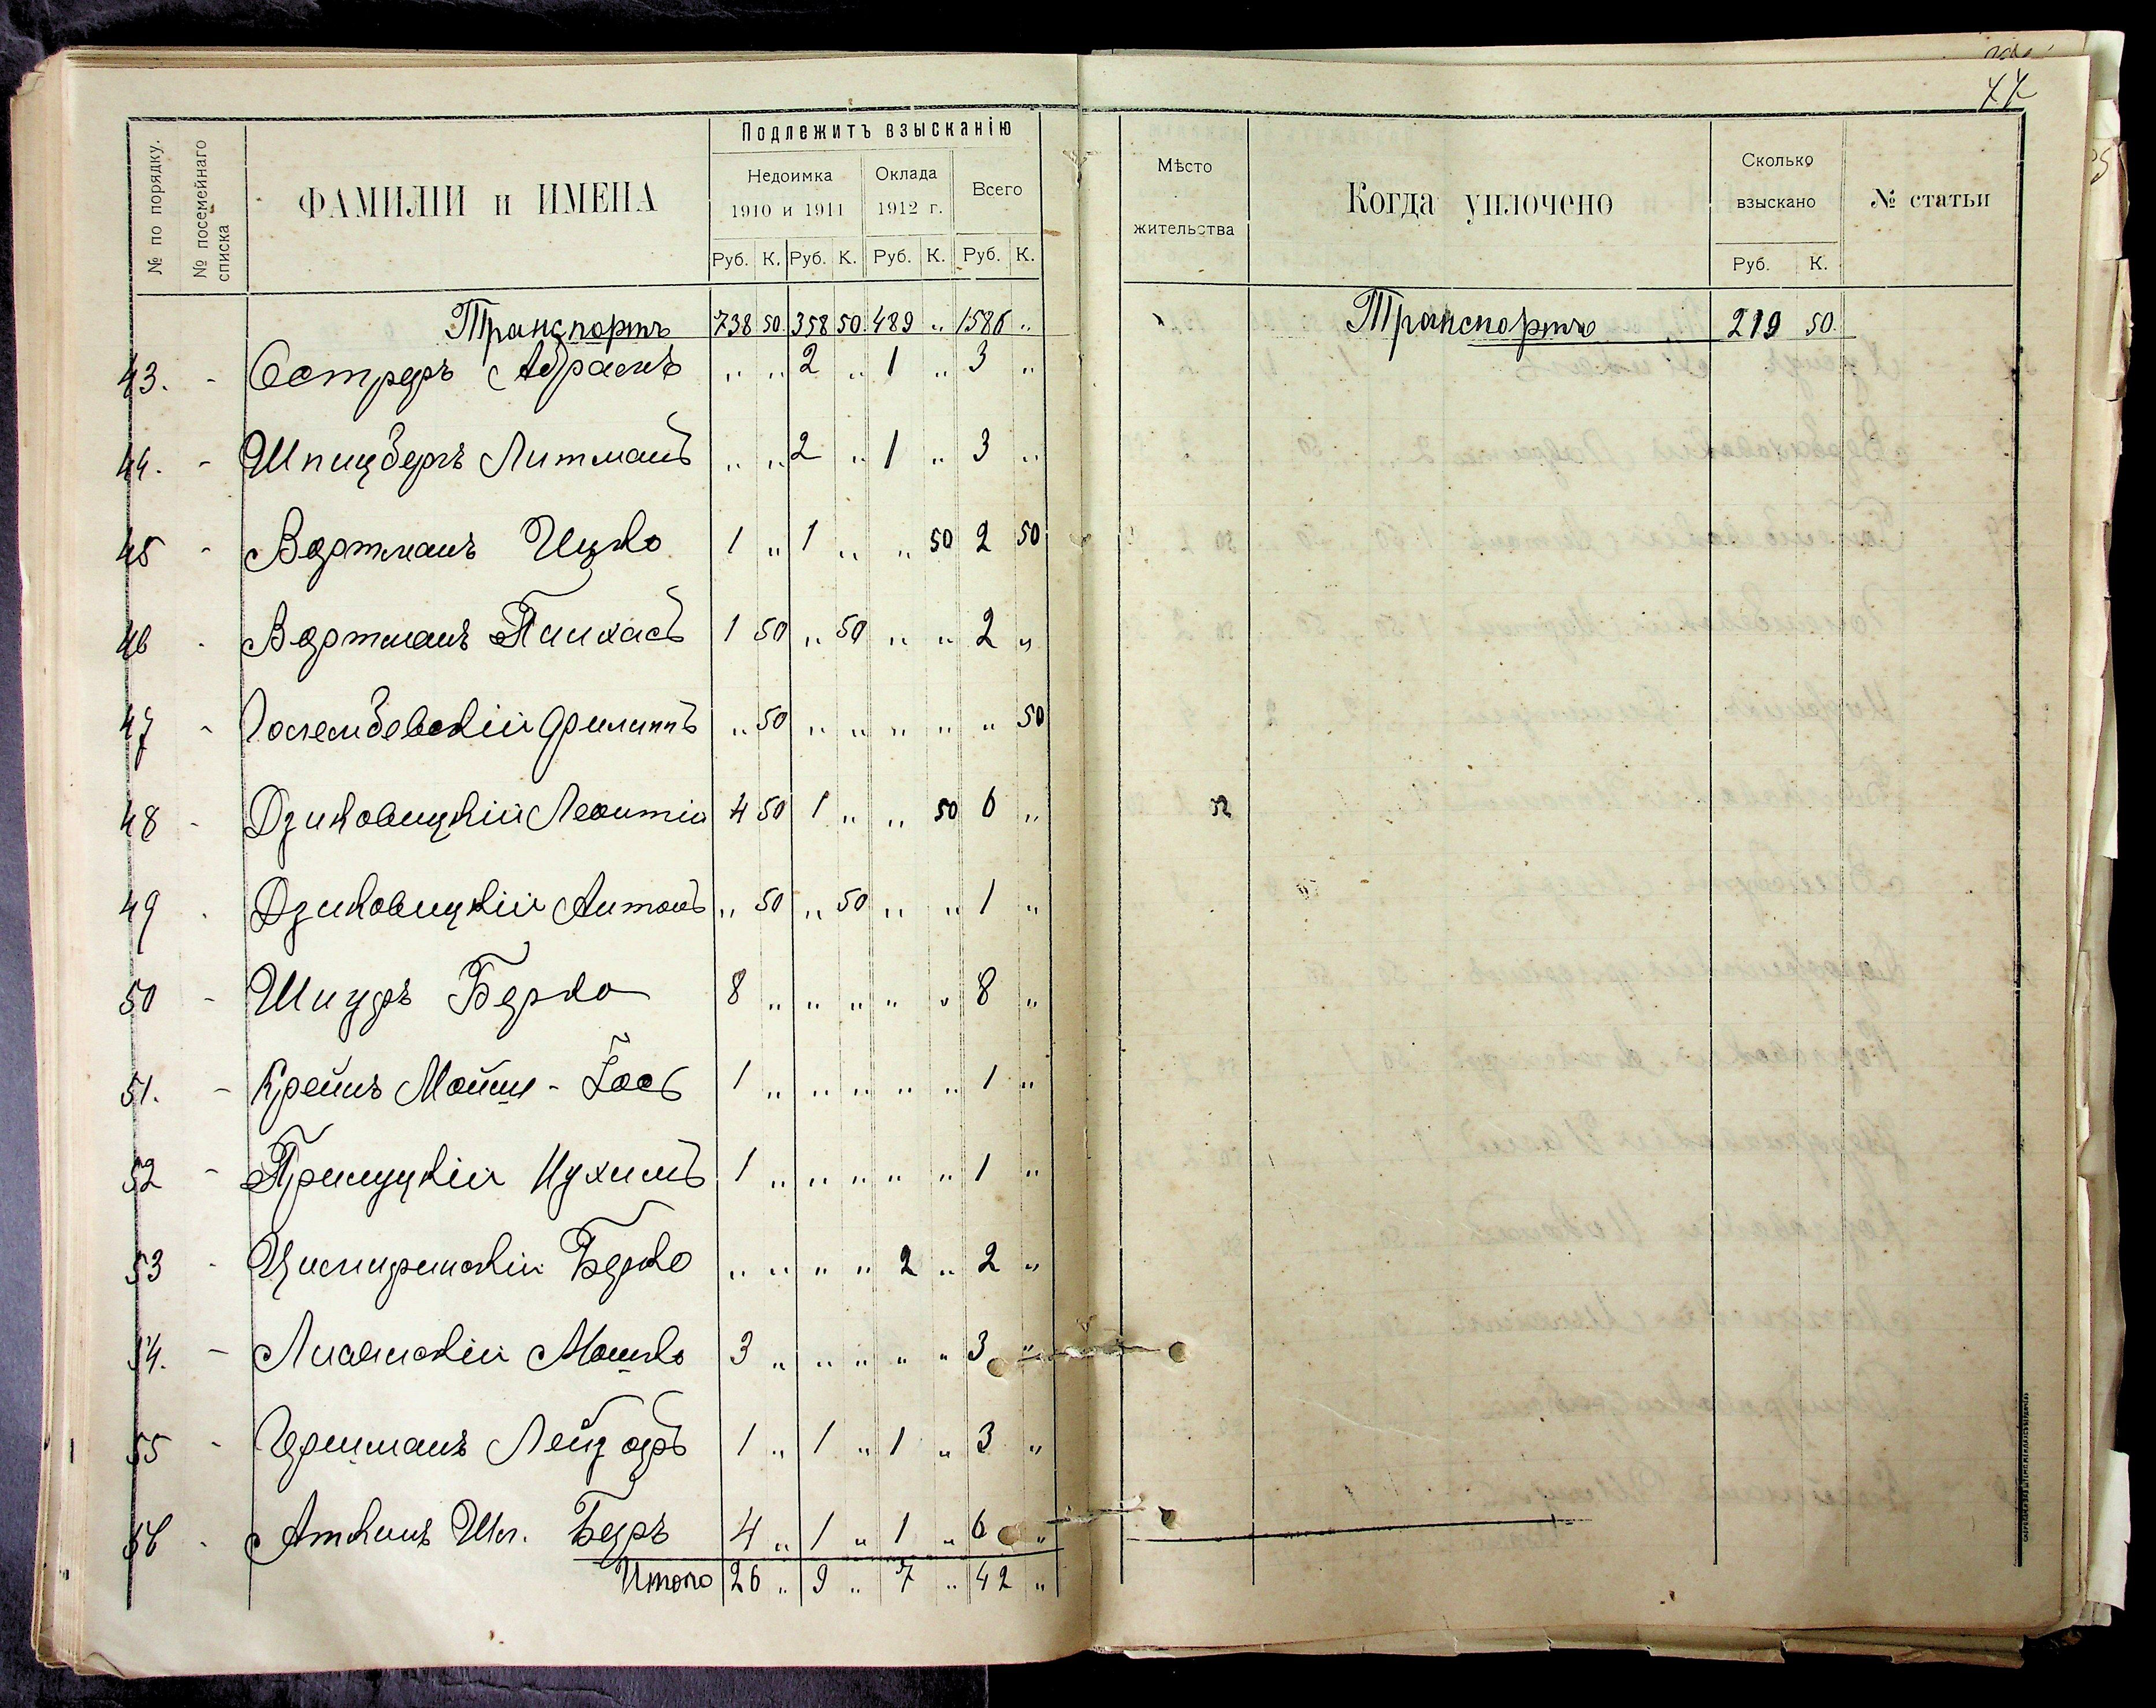 Подлежитъ взысканію
№ по порядку.
№ посемейнаго списка
ФАМИЛІИ и ИМЕНА
Недоимка
1910 и 1911
Оклада
1912 г.
Всего
Руб. К. Руб. К. Руб. К. Руб. К.
Транспортъ 738 50. 358 50. 489 „ 1586 „
43. - Остреръ Абрамъ „ „ 2 „ 1 „ 3 „
44. - Шпицбергъ Литманъ „ „ 2 „ 1 „ 3 „
45 - Вортманъ Ицко 1 „ 1 „ „ 50 2 50
46 - Вортманъ Пинхасъ 1 50 „ 50 „ „ 2 „
47 - Голембевскій Филиппъ „ 50 „ „ „ „ „ 50
48 - Дзиковицкій Леонтій 4 50 1 „ „ 50 6 „
49 - Дзиковицкій Антонъ „ 50 „ 50 „ „ 1 „
50 - Шицеръ Берко 8 „ „ „ „ „ 8 „
51. - Крейнъ Мойше - 1 „ „ „ „ „ 1 „
52 - Прилуцкій Нухимъ 1 „ „ „ „ „ 1 „
53 - Берко „ „ „ „ 2 „ 2 „
54. - Лисянскій Мошко 3 „ „ „ „ „ 3 „
55 - Гершманъ Лейзоръ 1 „ 1 „ 1 „ 3 „
56 - Аткинъ Шл. Беръ 4 „ 1 „ 1 „ 6 „
Итого 26 „ 9 „ 7 „ 42 „
Мѣсто
жительства
Когда уплочено
Сколько
взыскано
Руб. К.
№ статьи
Транспортъ 219 50.